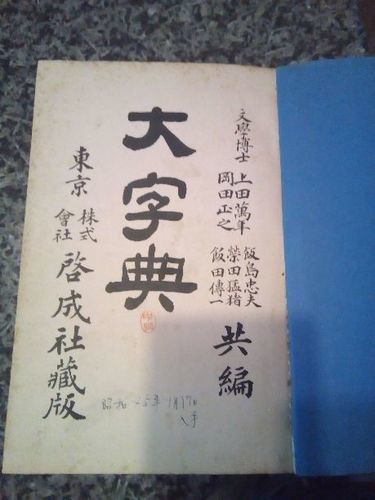 文學博士
上田萬年
岡田正之
飯島忠夫
榮田猛猪
飯田傳一
共編
大字典
東京
株式
會社
啓成社藏版
昭和 五年 1月17日
入手